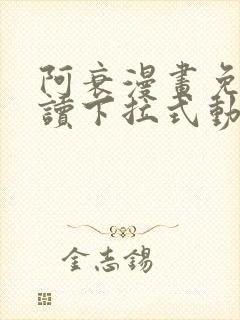 阿衰漫畫免
讀下拉式動
金志錫